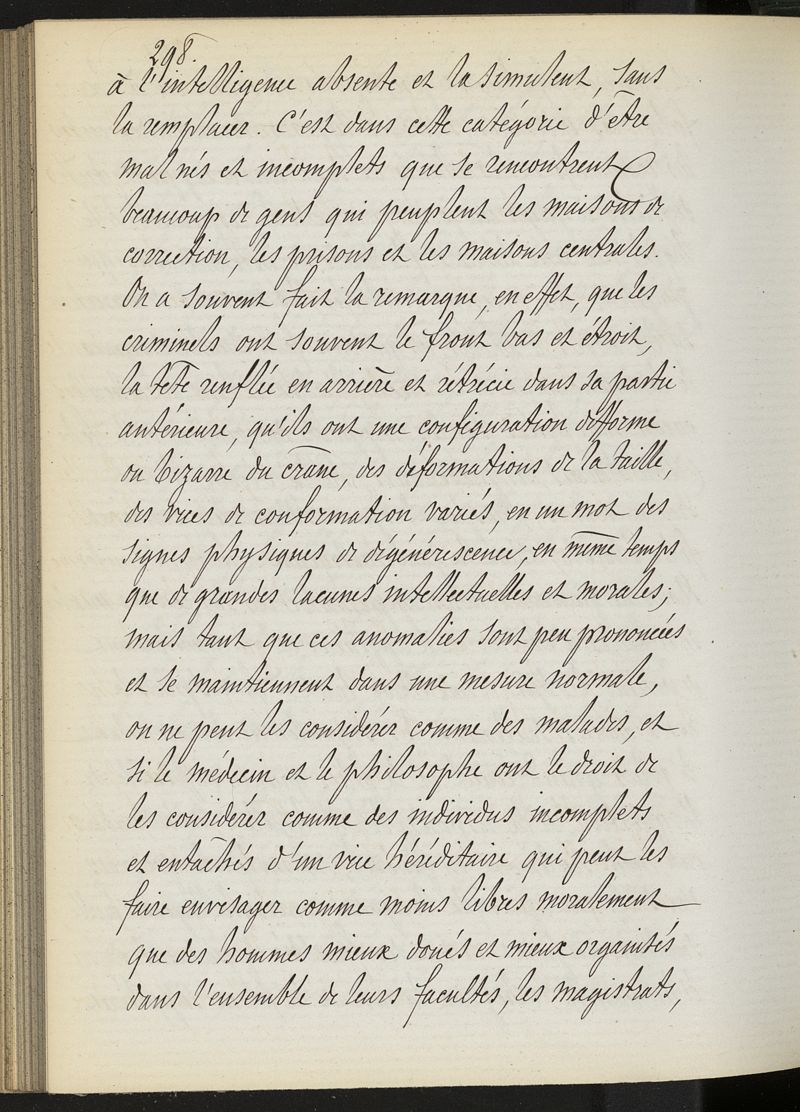 298.
à l'intelligence absente et la simulent, sans
la remplacer. C'est dans cette catégorie d'être
mal nés et incomplets que se rencontrent
beaucoup de gens qui peuplent les maisons de
correction, les prisons et les maisons centrales.
On a souvent fait la remarque, en effet, que les
criminels ont souvent le front bas et étroit,
la tête renflée en arrière et rétrécie dans sa partie
antérieure, qu'ils ont une configuration difforme
ou bizarre du crâne, des déformations de la taille,
des vices de conformation variés, en un mot des
signes physiques de dégénérescence, en même temps
que de grandes lacunes intellectuelles et morales;
mais tant que ces anomalies sont peu prononcées
et se maintiennent dans une mesure normale,
on ne peut les considérer comme des malades, et
si le médecin et le philosophe ont le droit de
les considérer comme des individus incomplets
et entachés d'un vice héréditaire qui peut les
faire envisager comme moins libres moralement
que des hommes mieux doués et mieux organisés
dans l'ensemble de leurs facultés, les magistrats,